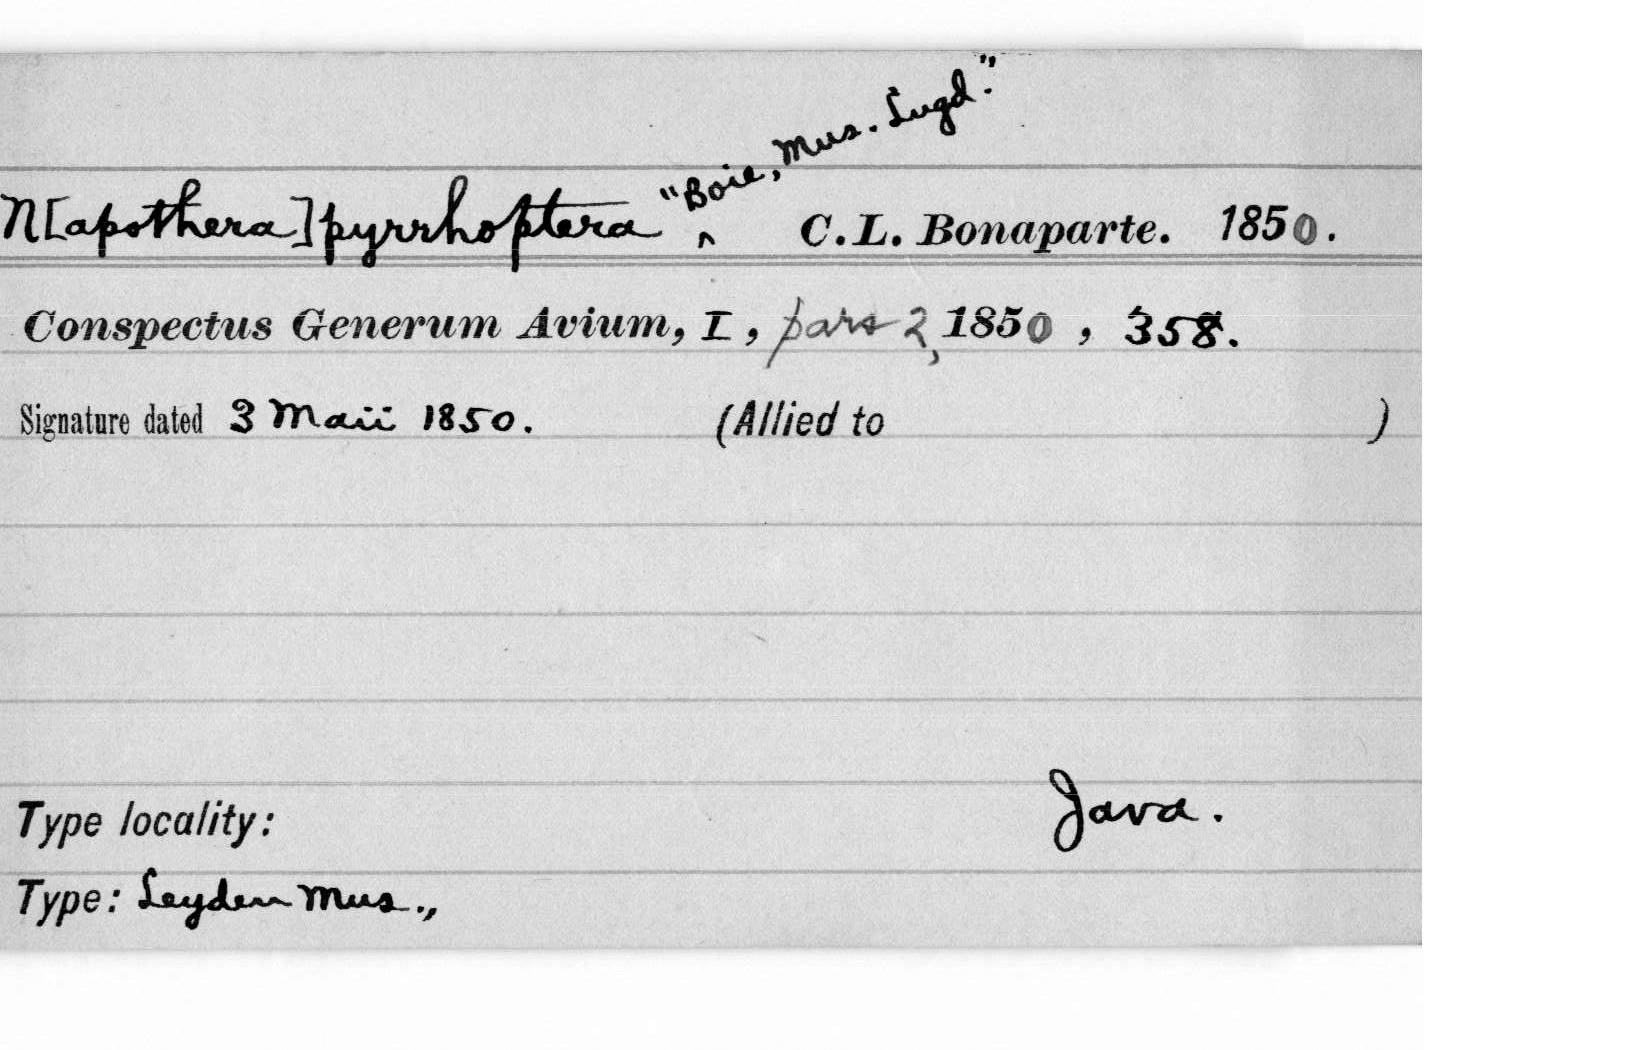 "Boie, Mus. Lugd."
N[apothera] pyrrhoptera ^ C.L. Bonaparte. 1850.
Conspectus Generum Avium, I, pars 2, 1850, 358.
Signature dated 3 Maii 1850. (Allied to )
Type locality: Java.
Type: Leyden Mus.,